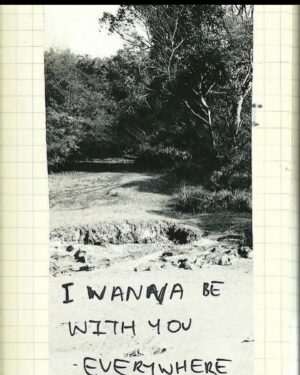 I WANNA BE
WITH YOU
-EVERYWHERE